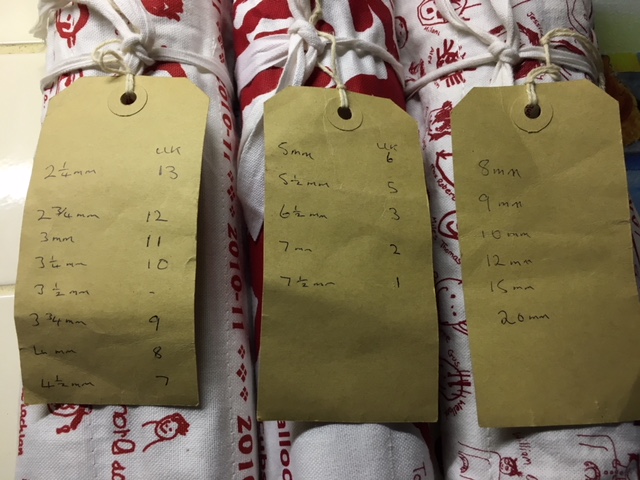 UK
2 1/4 mm 13
2 3/4 mm 12
3 mm 11
3 1/4 mm 10
3 1/2 mm -
3 3/4 mm 9
4 mm 8
4 1/2 mm 7
UK
5mm 6
5 1/2 mm 5
6 1/2 mm 3
7 mm 2
7 1/2 mm 1
8mm
9mm
10mm
12mm
15mm
20mm
2010-11
2010-11